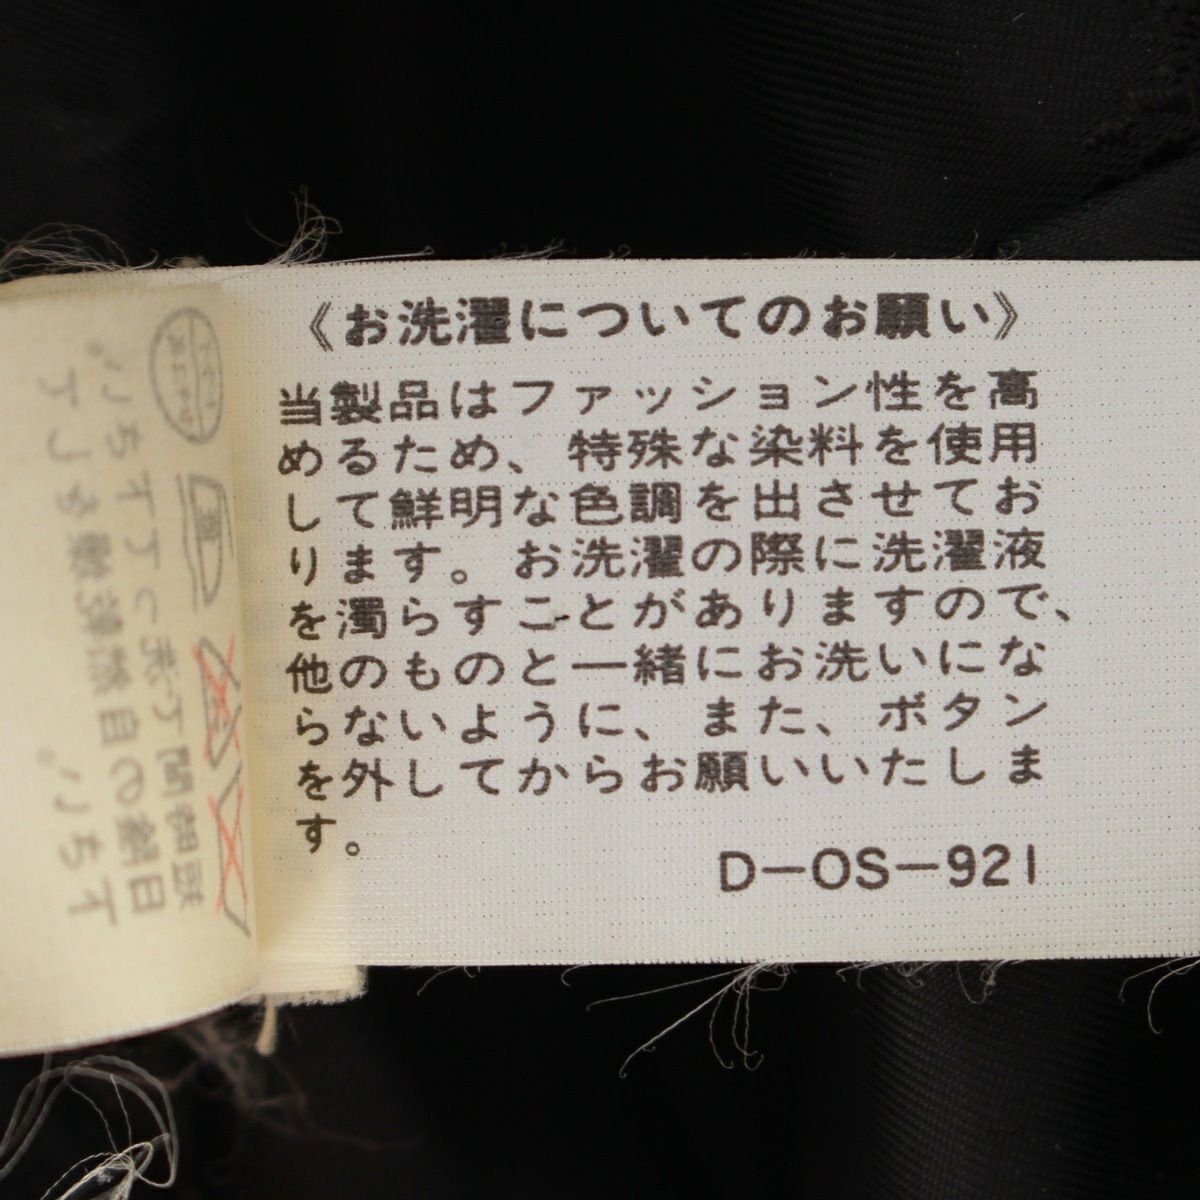 《お洗濯についてのお願い》
当製品はファッション性を高
めるため、特殊な染料を使用
して鮮明な色調を出させてお
ります。お洗濯の際に洗濯液
を濁らすことがありますので、
他のものと一緒にお洗いにな
らないように、また、ボタン
を外してからお願いいたしま
す。
D-OS-921